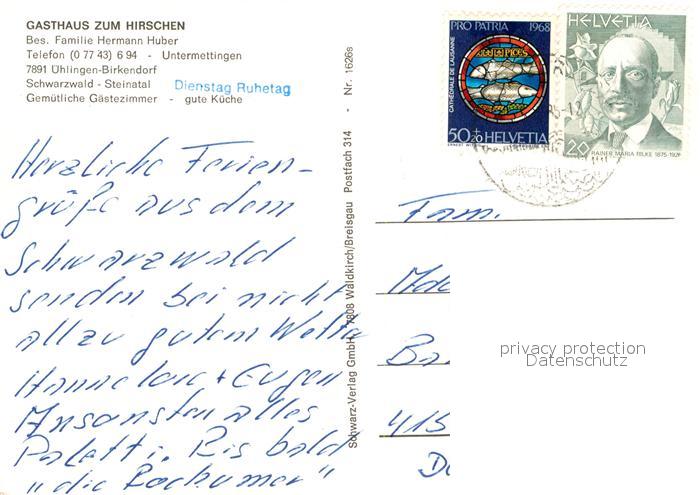 GASTHAUS ZUM HIRSCHEN
Bes. Familie Hermann Huber
Telefon (0 77 43) 6 94 - Untermettingen
7891 Ühlingen-Birkendorf
Schwarzwald - Steinatal
Gemütliche Gästezimmer - gute Küche
Dienstag Ruhetag
Herzliche Ferien-
grüße aus dem
Schwarzwald
senden bei nicht
allzu gutem Wetter
Hannelore + Eugen
Ansonsten alles
Paletti. Bis bald
"die Bochumer"
Schwarz-Verlag GmbH · 7808 Waldkirch/Breisgau Postfach 314 - Nr. 1626s
PRO PATRIA 1968
CATHÉDRALE DE LAUSANNE
PICES
50+20 HELVETIA
HELVETIA
20
RAINER MARIA RILKE 1875-1926
Fam.
415
privacy protection
Datenschutz